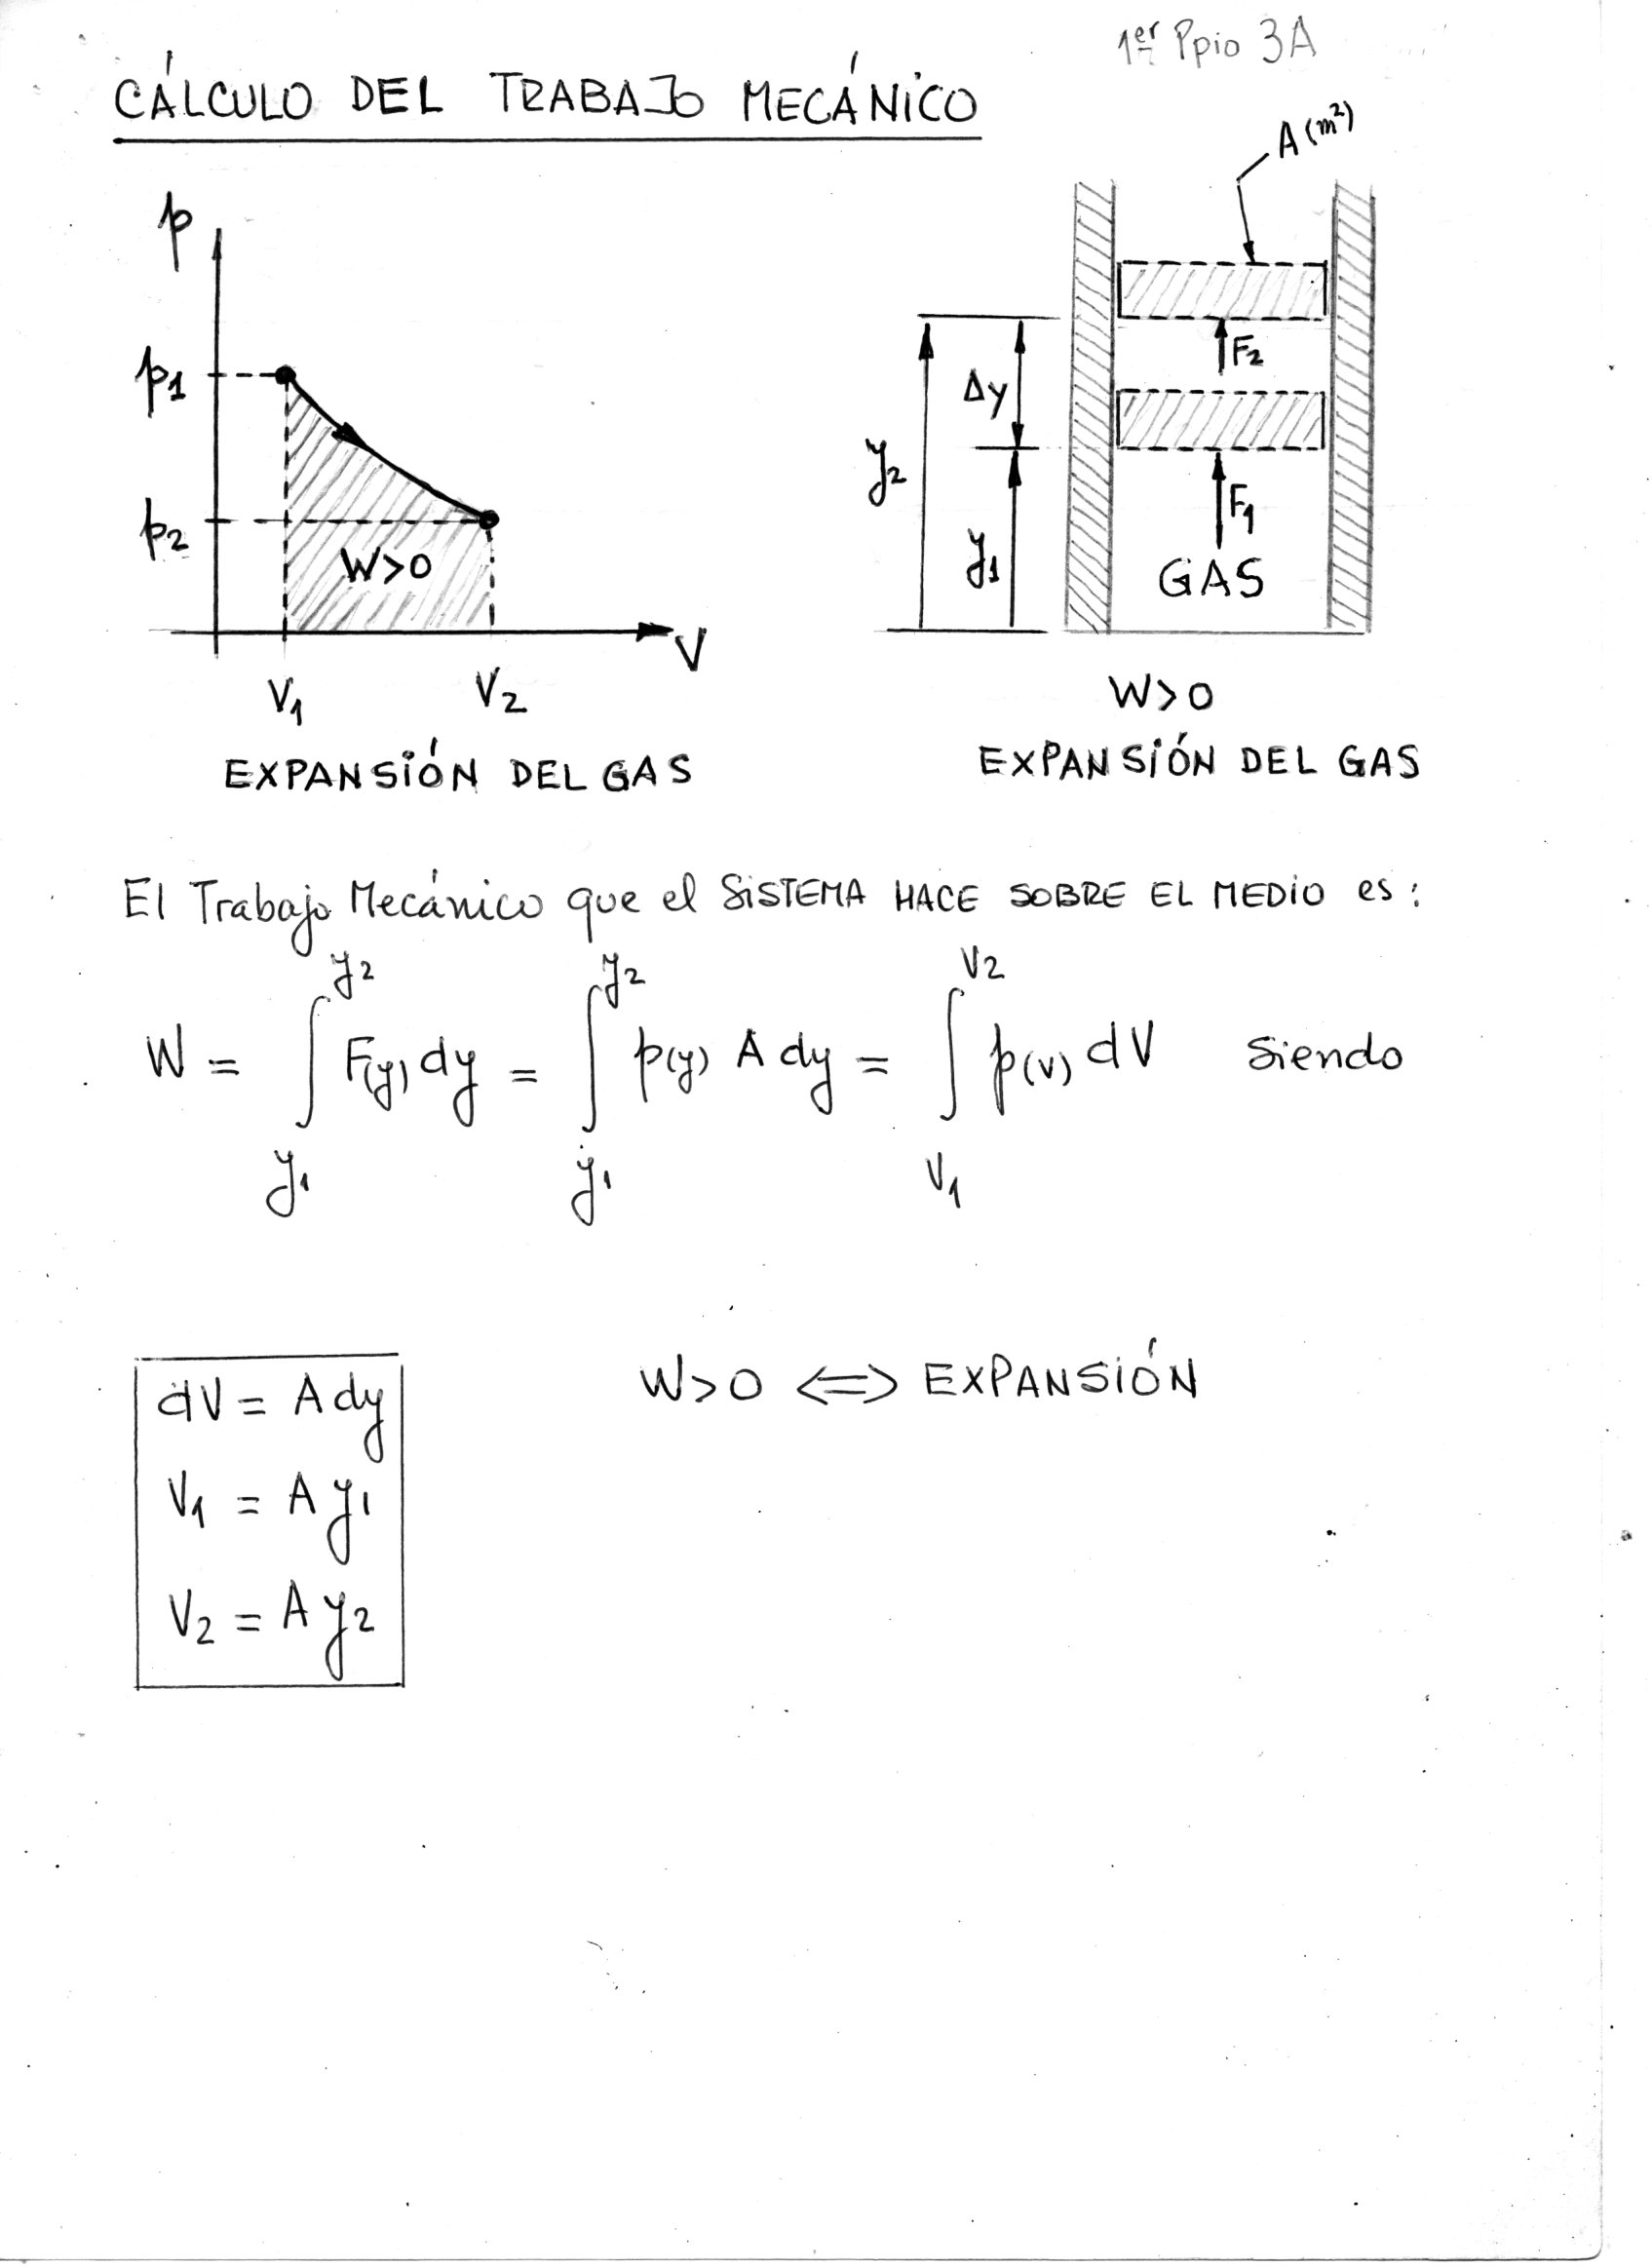 1er Ppio 3A
CÁLCULO DEL TRABAJO MECÁNICO
A (m²)
p
p1
p2
W>0
V
V1
V2
EXPANSIÓN DEL GAS
F2
Δy
y2
F1
y1
GAS
W>0
EXPANSIÓN DEL GAS
El Trabajo Mecánico que el SISTEMA HACE SOBRE EL MEDIO es:
W = ∫_{y1}^{y2} F(y) dy = ∫_{y1}^{y2} p(y) A dy = ∫_{V1}^{V2} p(v) dV Siendo
dV = A dy
V1 = A y1
V2 = A y2
W>0 <=> EXPANSIÓN